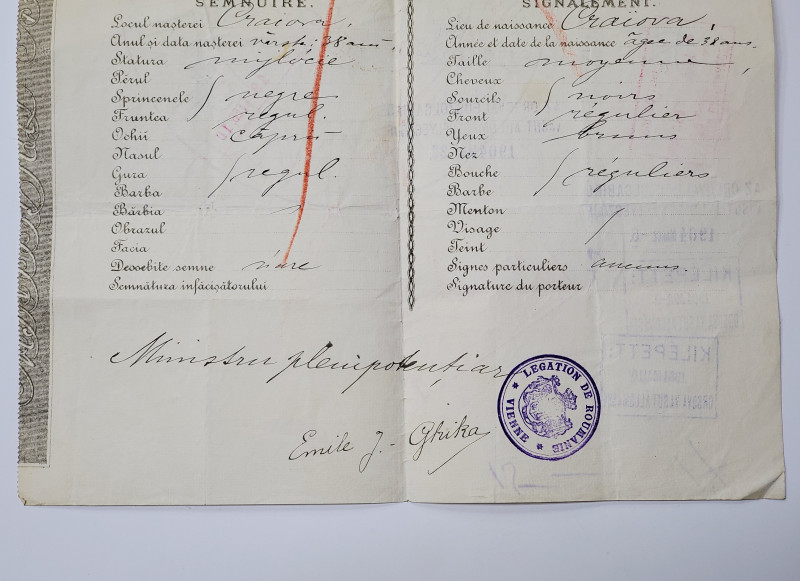 SEMNUIRE.
Locul nașterei Craiova,
Anul și data nașterei vârsta: 38 ani
Statura mijlocie
Pĕrul
Sprincenele negre
Fruntea regul.
Ochii căprii
Nasul
Gura regul.
Barba
Bărbia
Obrazul
Facia
Deosebite semne n'are
Semnătura înfăcișătorului
SIGNALEMENT.
Lieu de naissance Craïova,
Année et date de la naissance âgée de 38 ans.
Taille moyenne,
Cheveux
Sourcils noirs
Front régulier
Yeux bruns
Nez
Bouche réguliers
Barbe
Menton
Visage
Teint
Signes particuliers aucuns.
Signature du porteur
Ministru plenipotențiar
Emile J. Ghika
LEGATION DE ROUMANIE
* VIENNE *
1904
KILÉPETT
KILÉPETT